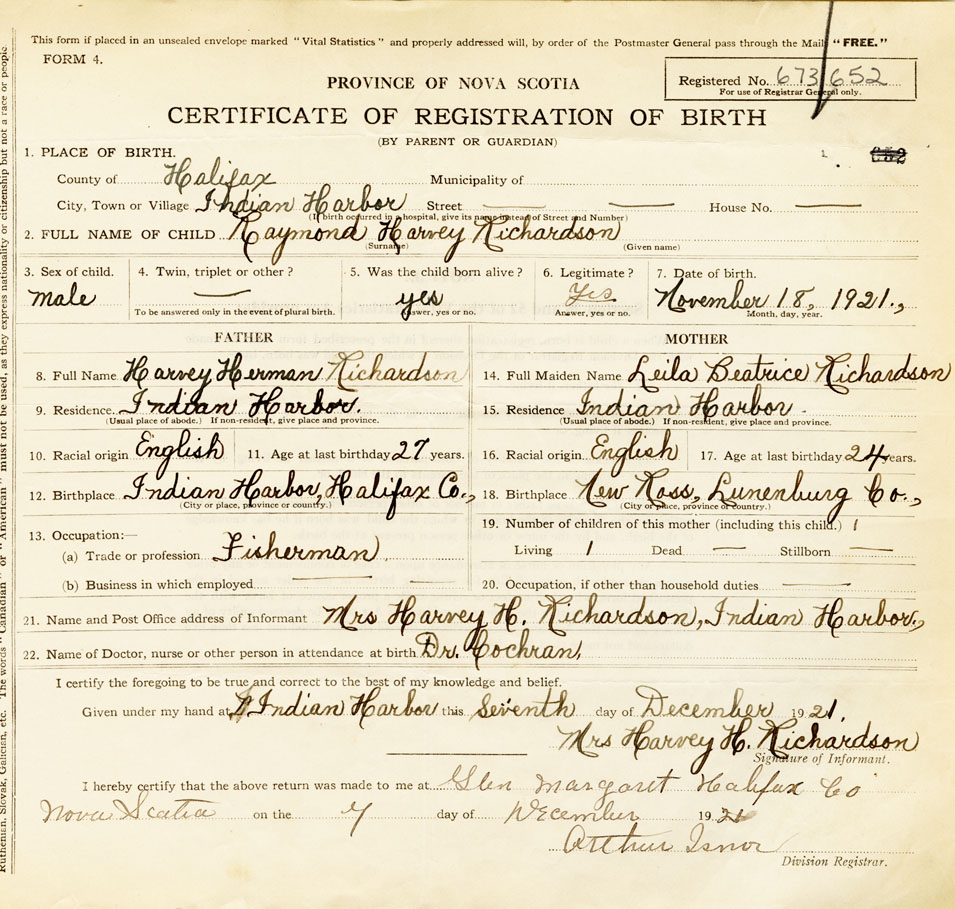 This form if placed in an unsealed envelope marked "Vital Statistics" and properly addressed will, by order of the Postmaster General pass through the Mail "FREE."
FORM 4.
PROVINCE OF NOVA SCOTIA
Registered No. 673652
For use of Registrar General only.
CERTIFICATE OF REGISTRATION OF BIRTH
(BY PARENT OR GUARDIAN)
1. PLACE OF BIRTH.
County of Halifax Municipality of
City, Town or Village Indian Harbor Street — — House No. —
(If birth occurred in a hospital, give its name instead of Street and Number)
2. FULL NAME OF CHILD Raymond Harvey Richardson
(Surname) (Given name)
3. Sex of child. 4. Twin, triplet or other? 5. Was the child born alive? 6. Legitimate? 7. Date of birth.
male — yes Yes November 18, 1921.,
To be answered only in the event of plural birth. Answer, yes or no. Answer, yes or no. Month, day, year.
FATHER MOTHER
8. Full Name Harvey Herman Richardson 14. Full Maiden Name Leila Beatrice Richardson
9. Residence. Indian Harbor. 15. Residence Indian Harbor.
(Usual place of abode.) If non-resident, give place and province. (Usual place of abode.) If non-resident, give place and province.
10. Racial origin English 11. Age at last birthday 27 years. 16. Racial origin English 17. Age at last birthday 24 years.
12. Birthplace Indian Harbor, Halifax Co., 18. Birthplace New Ross, Lunenburg Co.,
(City or place, province or country.) (City or place, province or country.)
13. Occupation:— 19. Number of children of this mother (including this child.) 1
(a) Trade or profession Fisherman Living 1 Dead — Stillborn —
(b) Business in which employed — — 20. Occupation, if other than household duties —
21. Name and Post Office address of Informant Mrs Harvey H. Richardson, Indian Harbor.,
22. Name of Doctor, nurse or other person in attendance at birth Dr. Cochran,
I certify the foregoing to be true and correct to the best of my knowledge and belief.
Given under my hand at Indian Harbor this Seventh day of December 1921.
Mrs Harvey H. Richardson
Signature of Informant.
I hereby certify that the above return was made to me at Glen Margaret Halifax Co
Nova Scotia on the 7 day of December 1921
Arthur Isnor
Division Registrar.
Ruthenian, Slovak, Galician, etc. The words "Canadian" or "American" must not be used, as they express nationality or citizenship but not a race or people.